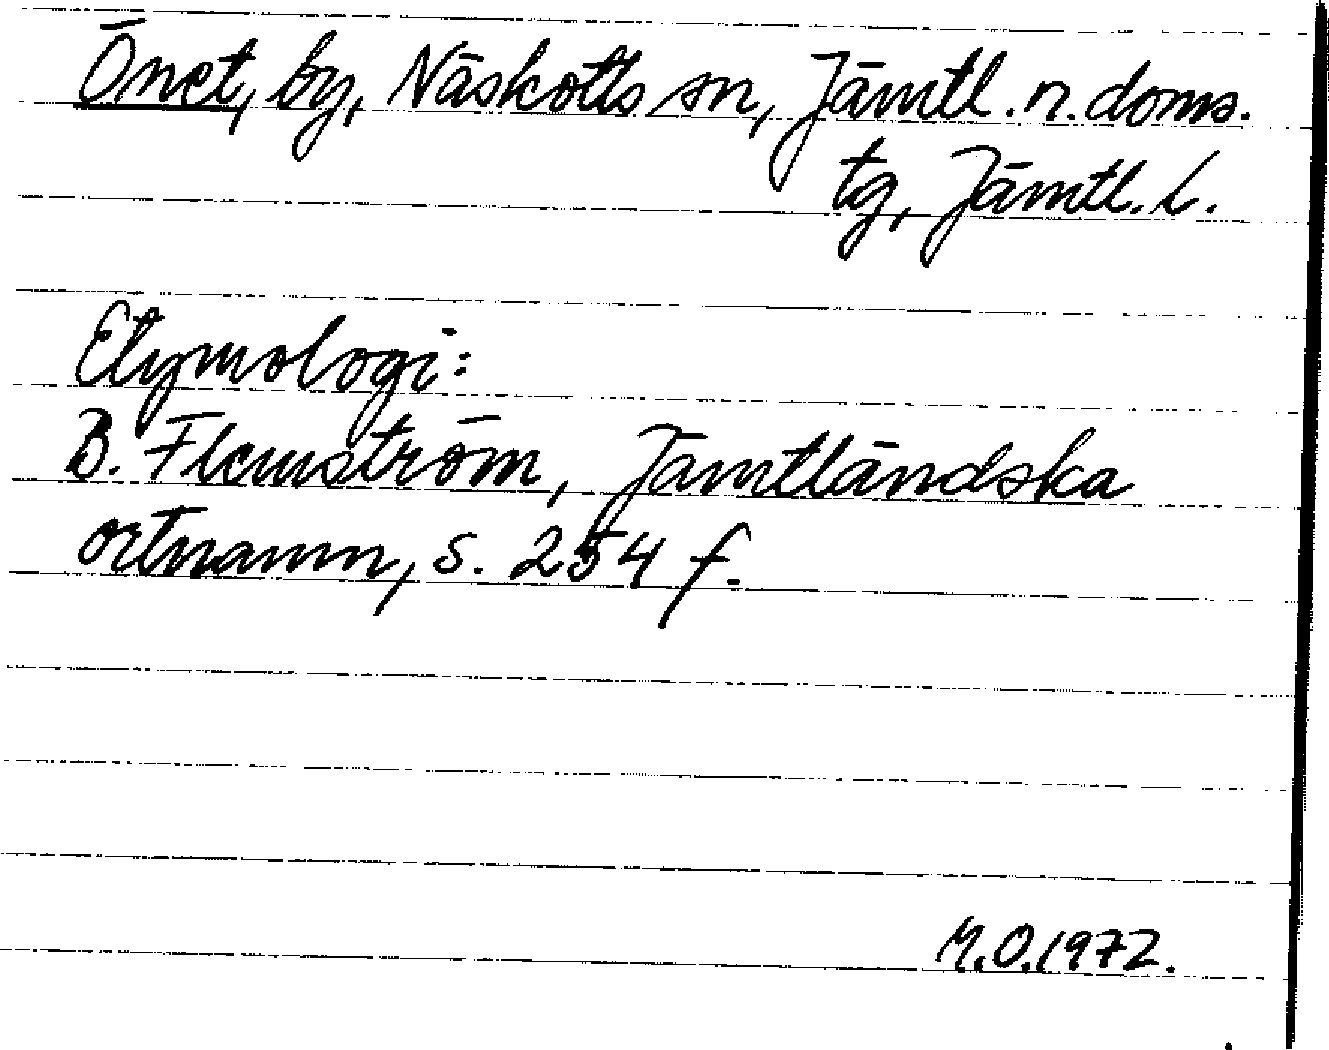 Önet, by, Näskotts sn, Jämtl. n. doms.
tg, Jämtl. L.
Etymologi:
B. Flemström, Jämtländska
ortnamn, s. 254 f.
M.O. 1972.